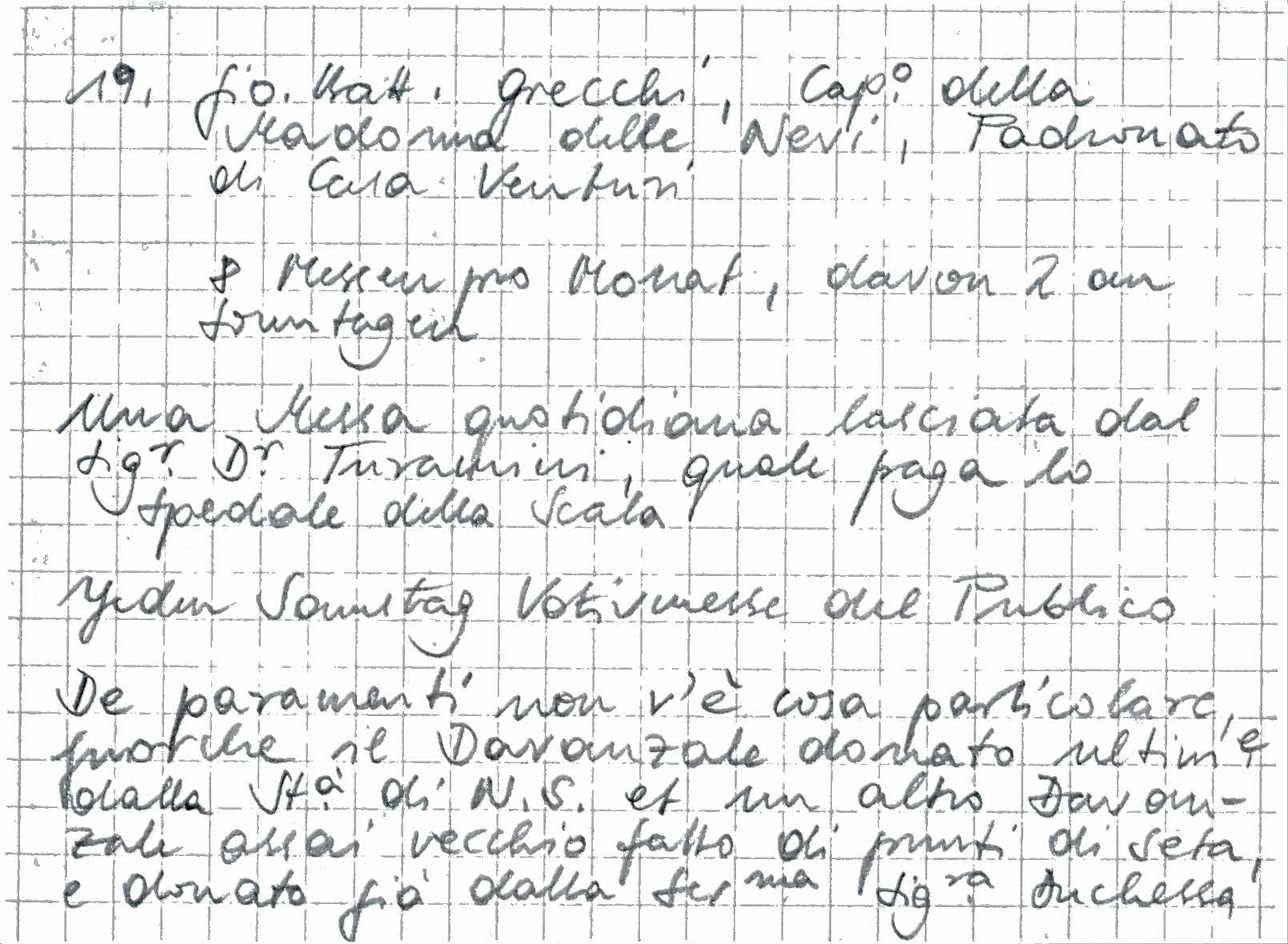 19. Gio. Batt. Grecchi, Cap.º della
Madonna delle Nevi, Padronato
di Casa Venturi
8 Messen pro Monat, davon 2 an
Sonntagen
Una Messa quotidiana lasciata dal
Sigr. Dr. Turamini, quale paga lo
Spedale della Scala
Jeden Samstag Votivmesse del Publico
De paramenti non v'è cosa particolare,
fuorche il Davanzale donato ultim.e
dalla St.à di N.S. et un altro Davan-
zale assai vecchio fatto di punti di seta,
e donato già dalla Ser.ma Sig.ra Duchessa